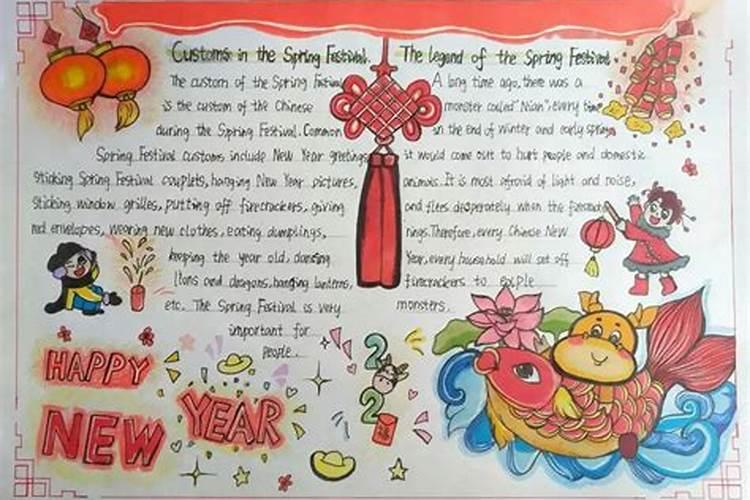 Customs in the Spring Festival.
The custom of the Spring Festival
is the custom of the Chinese
during the Spring Festival. Common
Spring Festival customs include New Year greetings,
sticking Spring Festival couplets, hanging New Year pictures,
sticking window grilles, putting off firecrackers, giving
red envelopes, wearing new clothes, eating dumplings,
keeping the year old, dancing
lions and dragons, hanging lanterns,
etc. The Spring Festival is very
important for
people.
The legend of the Spring Festival
A long time ago, there was a
monster called "Nian", every time
in the end of winter and early spring
it would come out to hurt people and domestic
animals. It is most afraid of light and noise,
and flees desperately when the firecracker
rings. Therefore, every Chinese New
Year, every household will set off
firecrackers to
monsters.
HAPPY
NEW
YEAR
2
2